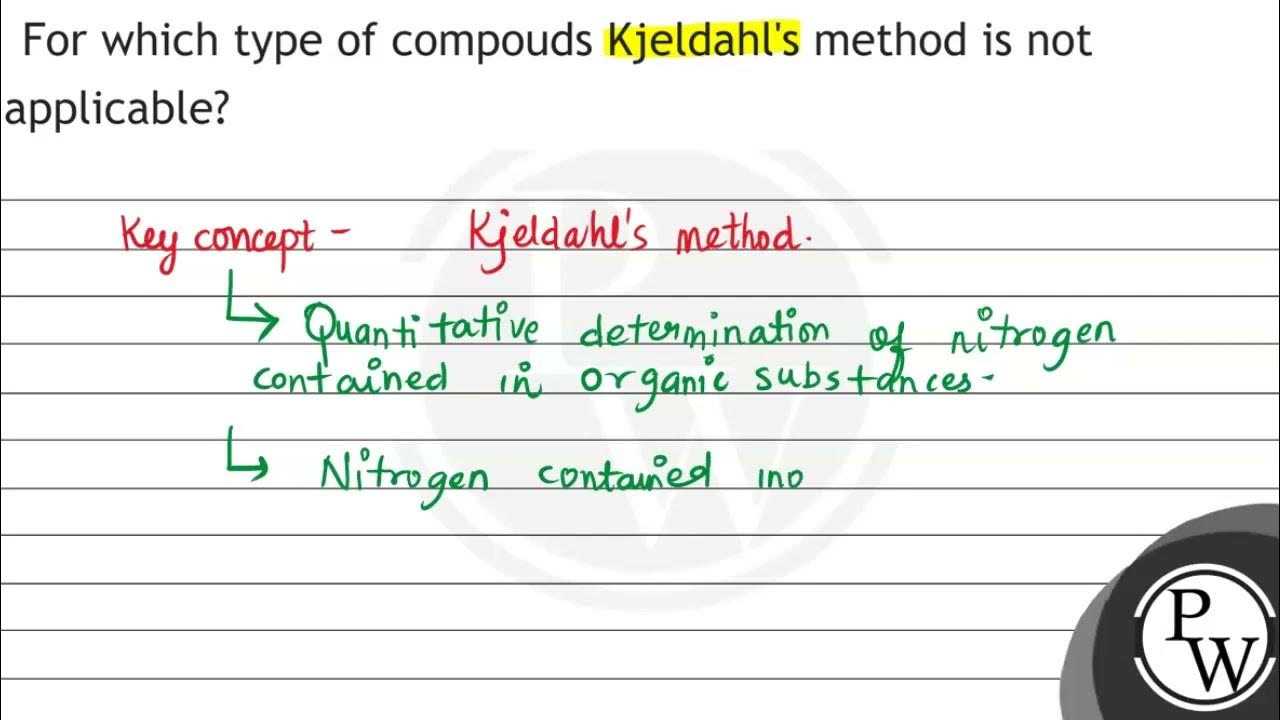 For which type of compouds Kjeldahl's method is not
applicable?
Key concept - Kjeldahl's method.
Quantitative determination of nitrogen
contained in organic substances-
Nitrogen contained ino
PW
PW